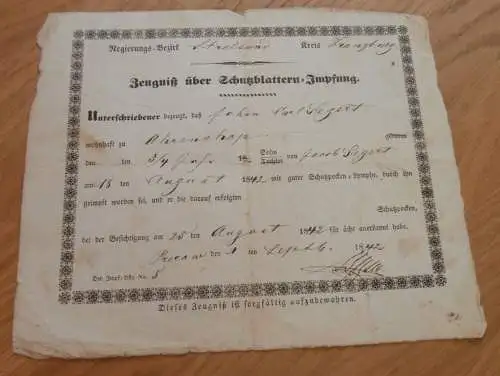 Regierungs-Bezirk Stralsund Kreis Franzburg
Zeugniß über Schutzblattern-Impfung.
Unterschriebener bezeugt, daß Johan Carl Segert
wohnhaft zu Ahrenshop
den ten 3/4 Jahr 18 Sohn von Jacob Segert
am 18 August 1842 mit guter Schutzpocken-Lymphe, durch ihn
geimpft worden sei, und er die darauf erfolgten
Schutzpocken,
bei der Besichtigung am 25 ten August 1842 für ächt anerkannt habe.
den ten Septb. 1842
Der Impf-Liste No. 5
Dieses Zeugniß ist sorgfältig aufzubewahren.